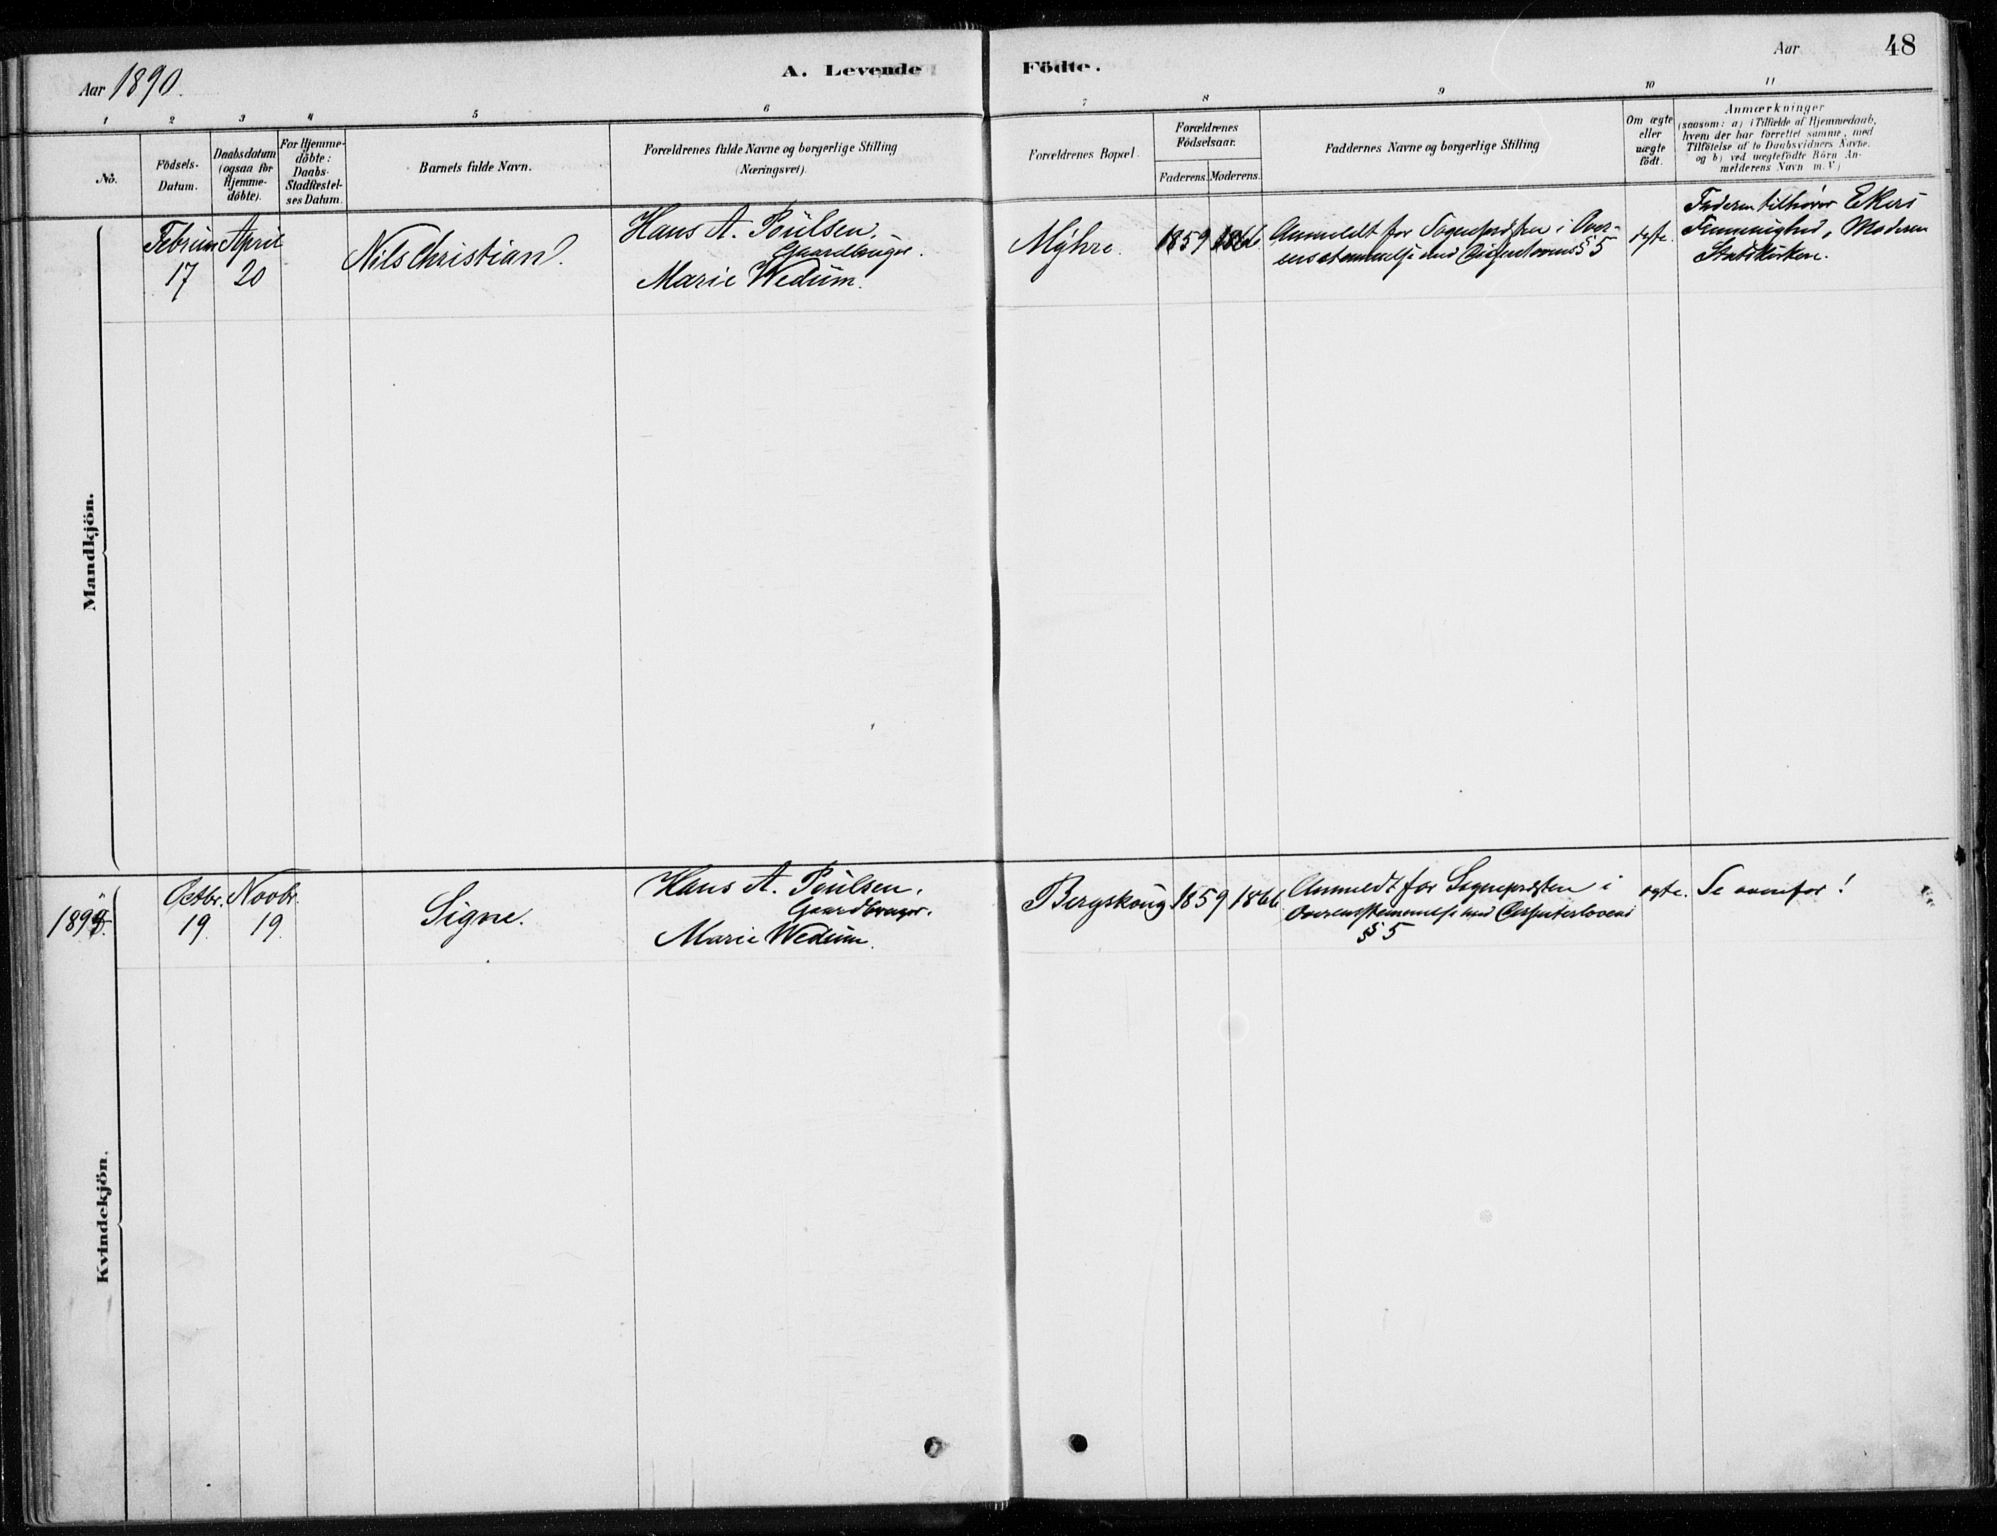 Aar 1890.
A. Levende Födte.
Aar
48
1 2 3 4 5 6 7 8 9 10 11
No.
Födsels-
Datum.
Daabsdatum
(ogsaa for
Hjemme-
döbte).
For Hjemme-
döbte:
Daabs-
Stadfæstel-
ses Datum.
Barnets fulde Navn.
Forældrenes fulde Navne og borgerlige Stilling
(Næringsvei).
Forældrenes Bopæl.
Forældrenes
Födselsaar.
Faderens. Moderens.
Faddernes Navne og borgerlige Stilling
Om ægte
eller
uægte
födt.
Anmærkninger
(saasom: a) i Tilfælde af Hjemmedaab,
hvem der har forrettet samme, med
Tilföielse af to Daabsvidners Navne.
og b) ved uægtefödte Börn An-
melderens Navn m.V.)
Mandkjön.
Februar
17
April
20
Nils Christian.
Hans A. Poulsen.
Gaardbruger.
Marie Wedum.
Myhre.
1859
1866
Anmeldt for Sognepræsten i Over-
ensstemmelse med §5
ægte.
Faderen tilhører Ekers
Frimenighed, Moderen
Statskirken.
Kvindekjön.
189
Octbr.
19.
Novbr.
19.
Signe.
Hans A. Poulsen.
Gaardbruger.
Marie Wedum.
Bergskoug
1859
1866.
Anmeldt for Sognepræsten i
Overensstemmelse med Dissenterlovens
§ 5
ægte.
Se ovenfor!